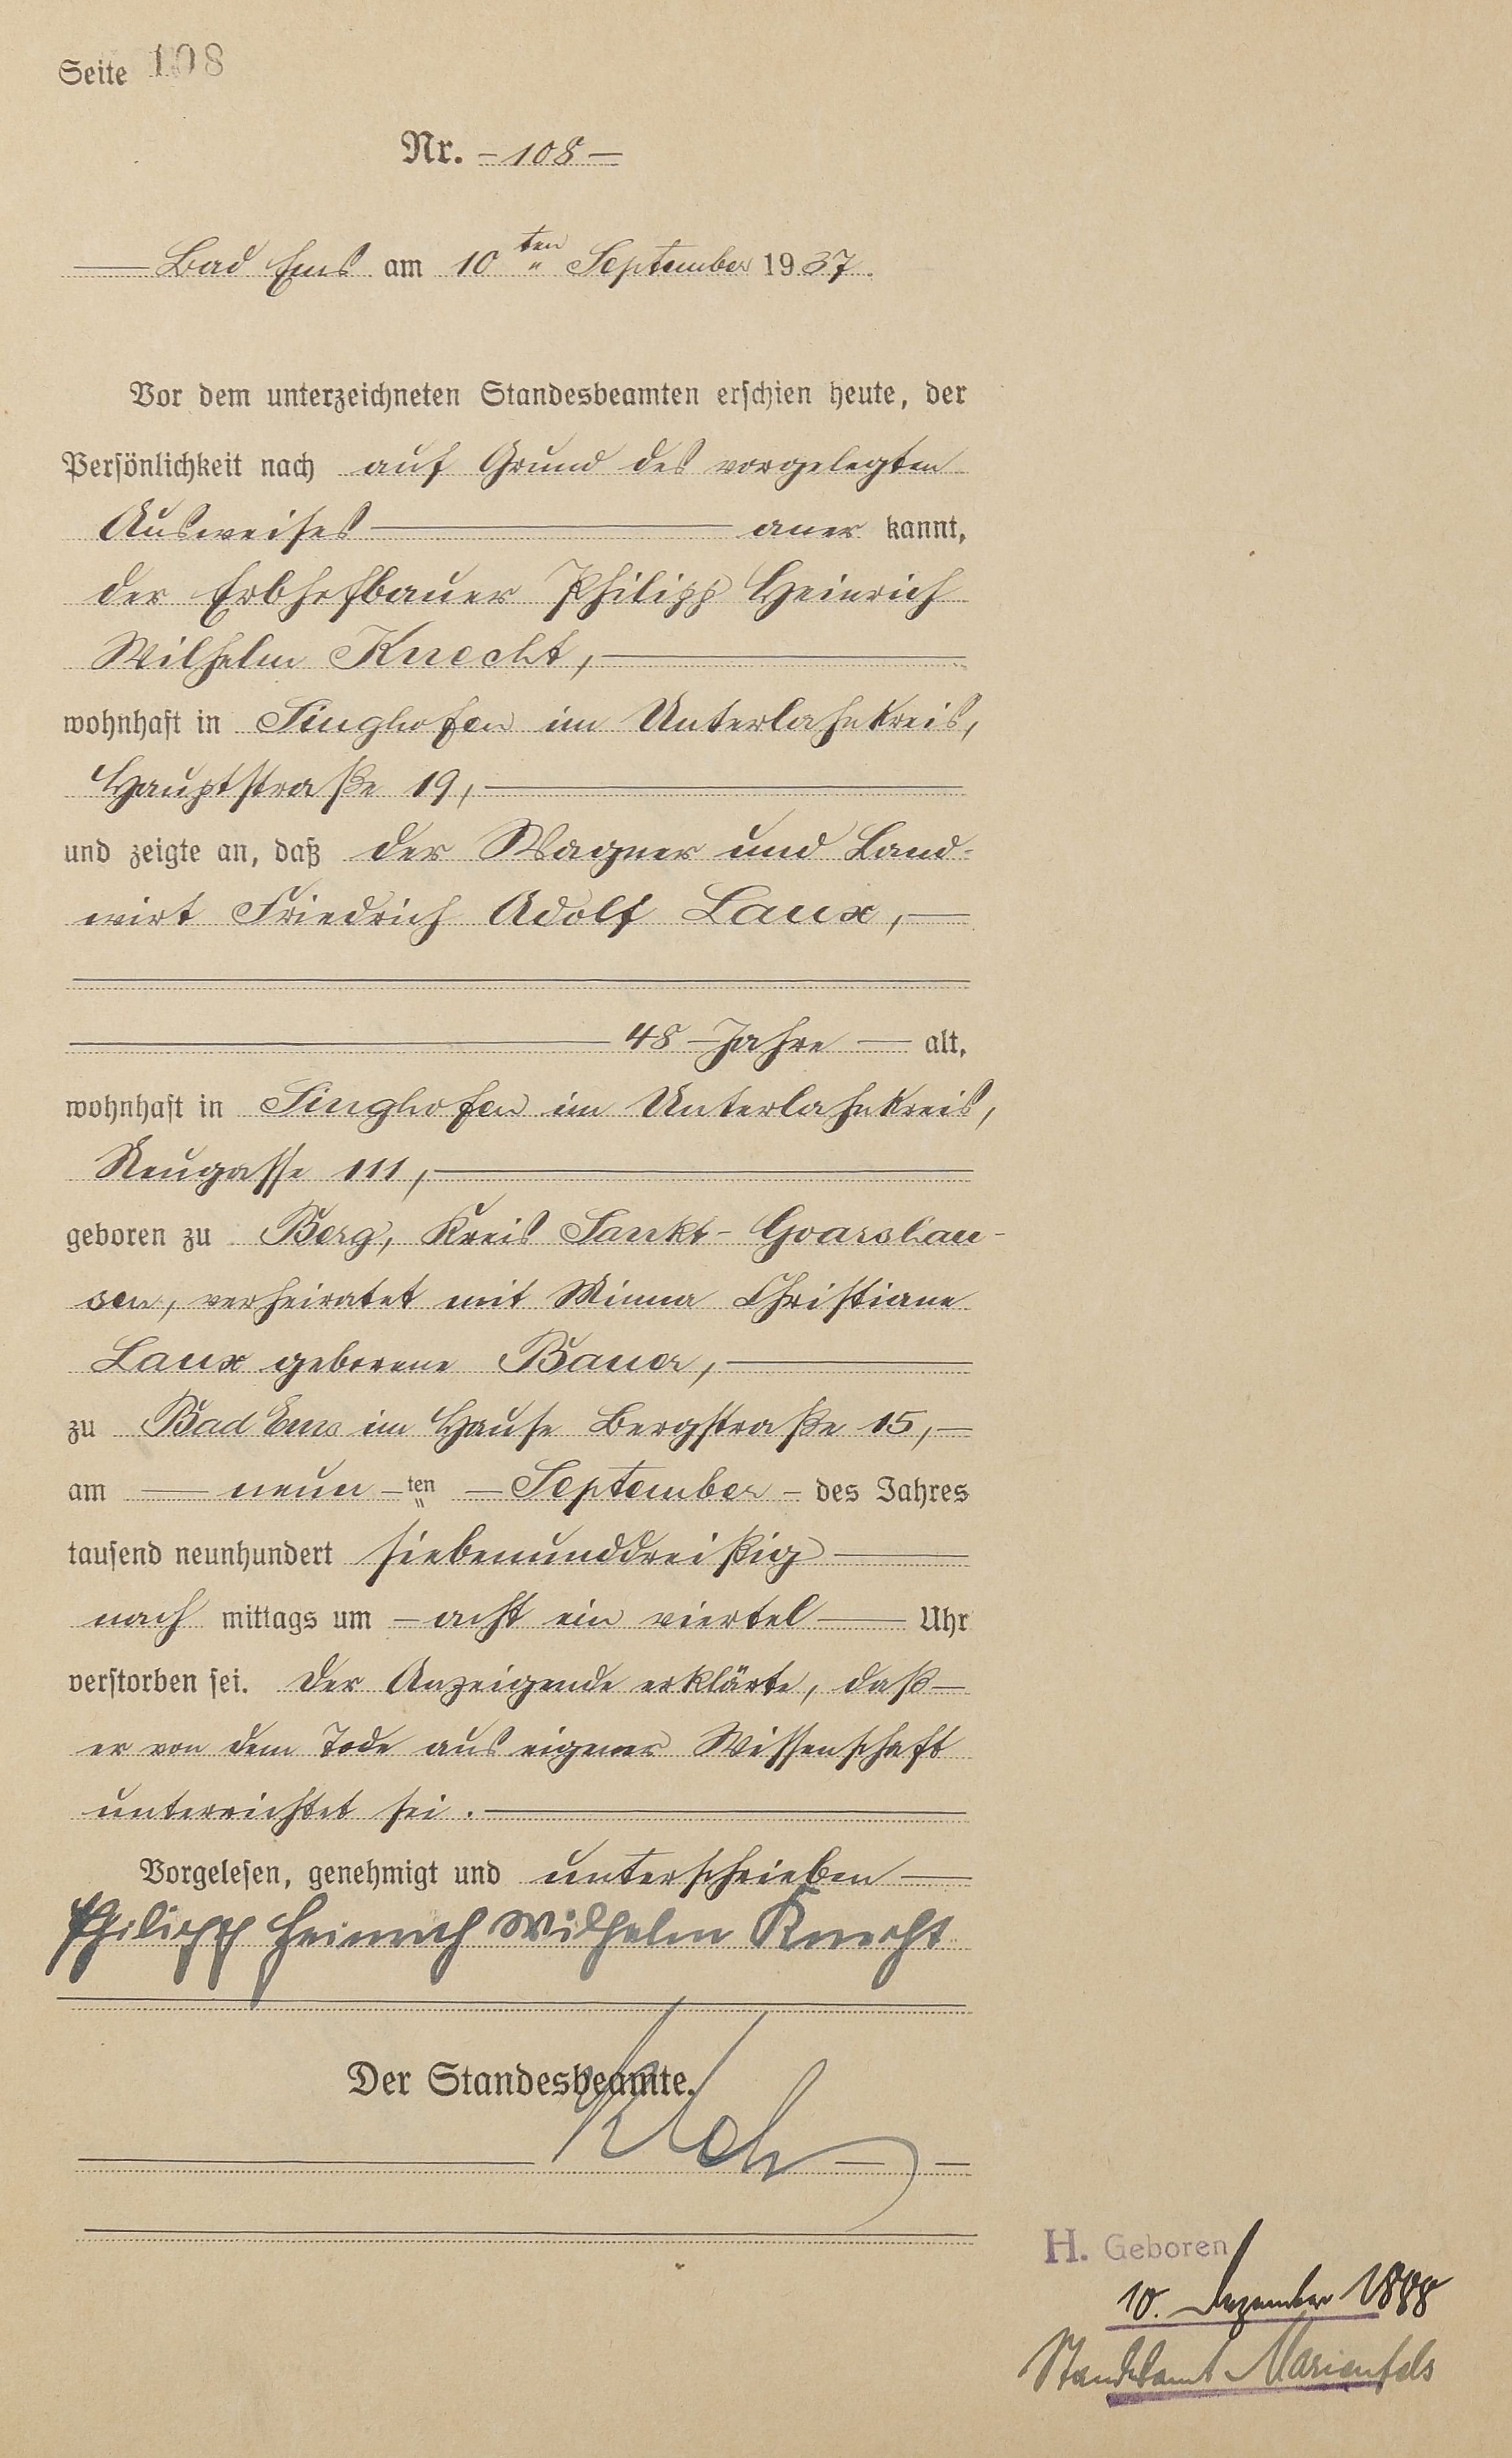 Seite 108
Nr. – 108 –
Bad Ems am 10ten September 1937.
Vor dem unterzeichneten Standesbeamten erschien heute, der
Persönlichkeit nach auf Grund des vorgelegten
Ausweises aner kannt,
der Erbhofbauer Philipp Heinrich
Wilhelm Knecht,
wohnhaft in Singhofen im Unterlahnkreis,
Hauptstraße 19,
und zeigte an, daß der Wagner und Land-
wirt Friedrich Adolf Laux,
48 – Jahre — alt,
wohnhaft in Singhofen im Unterlahnkreis,
Neugasse 111,
geboren zu Berg, Kreis Sankt-Goarshau-
sen, verheiratet mit Minna Christiane
Laux geborene Bauer,
zu Bad Ems im Hause Bergstraße 15,
am — neun – ten – September – des Jahres
tausend neunhundert siebenunddreißig
nach mittags um – acht ein viertel — Uhr
verstorben sei. Der Anzeigende erklärte, daß
er von dem Tode aus eigener Wissenschaft
unterrichtet sei.
Vorgelesen, genehmigt und unterschrieben
Philipp Heinrich Wilhelm Knecht
Der Standesbeamte.
H. Geboren
10. Dezember 1888
Standesamt Marienfels